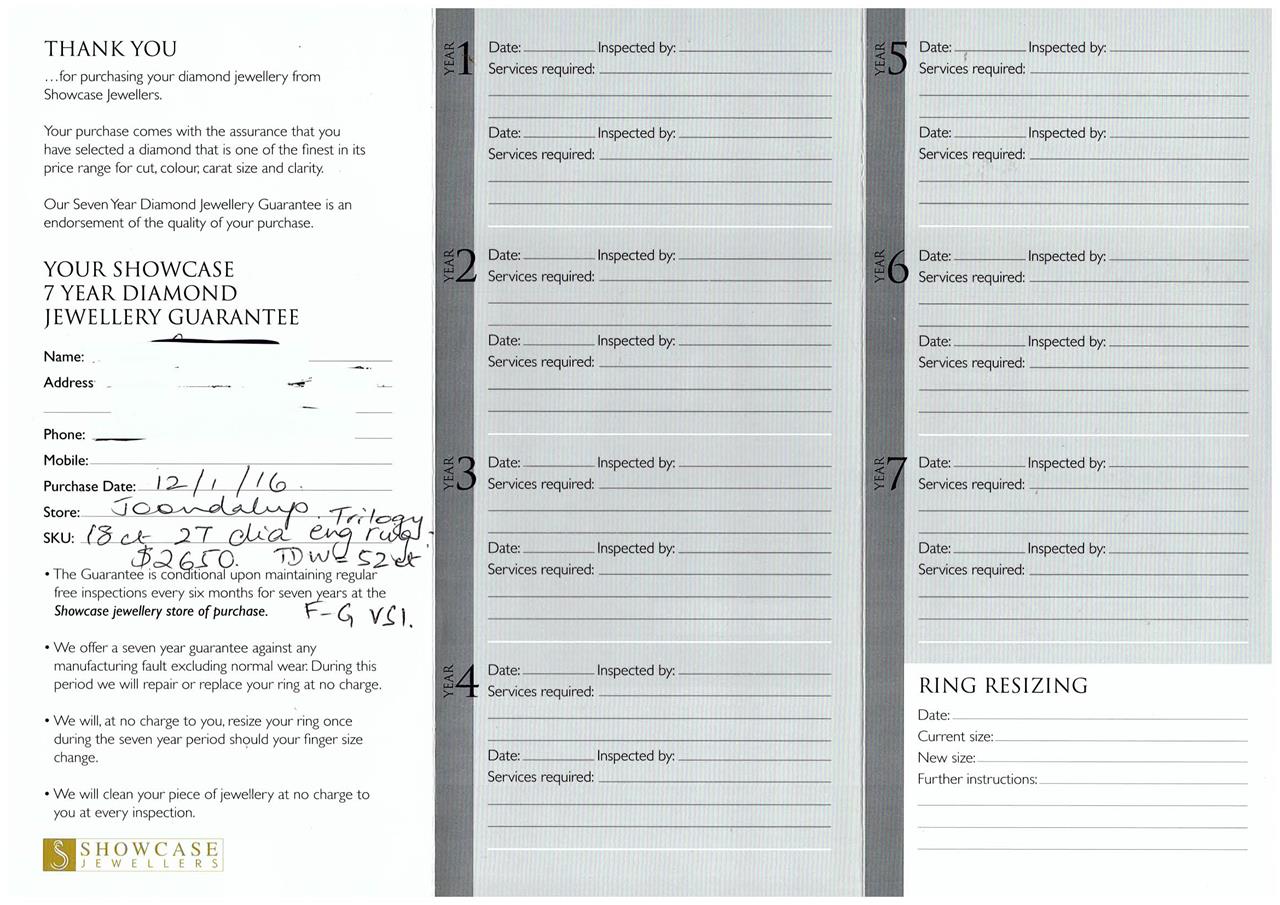 THANK YOU
…for purchasing your diamond jewellery from
Showcase Jewellers.
Your purchase comes with the assurance that you
have selected a diamond that is one of the finest in its
price range for cut, colour, carat size and clarity.
Our Seven Year Diamond Jewellery Guarantee is an
endorsement of the quality of your purchase.
YOUR SHOWCASE
7 YEAR DIAMOND
JEWELLERY GUARANTEE
Name:
Address
Phone:
Mobile:
Purchase Date: 12/1/16.
Store: Joondalup. Trilogy
SKU: 18ct 2T dia eng ring.
$2650. TDW=52ct
• The Guarantee is conditional upon maintaining regular
free inspections every six months for seven years at the
Showcase jewellery store of purchase. F-G VS1.
• We offer a seven year guarantee against any
manufacturing fault excluding normal wear. During this
period we will repair or replace your ring at no charge.
• We will, at no charge to you, resize your ring once
during the seven year period should your finger size
change.
• We will clean your piece of jewellery at no charge to
you at every inspection.
S SHOWCASE
JEWELLERS
YEAR 1
Date: Inspected by:
Services required:
Date: Inspected by:
Services required:
YEAR 2
Date: Inspected by:
Services required:
Date: Inspected by:
Services required:
YEAR 3
Date: Inspected by:
Services required:
Date: Inspected by:
Services required:
YEAR 4
Date: Inspected by:
Services required:
Date: Inspected by:
Services required:
YEAR 5
Date: Inspected by:
Services required:
Date: Inspected by:
Services required:
YEAR 6
Date: Inspected by:
Services required:
Date: Inspected by:
Services required:
YEAR 7
Date: Inspected by:
Services required:
Date: Inspected by:
Services required:
RING RESIZING
Date:
Current size:
New size:
Further instructions: